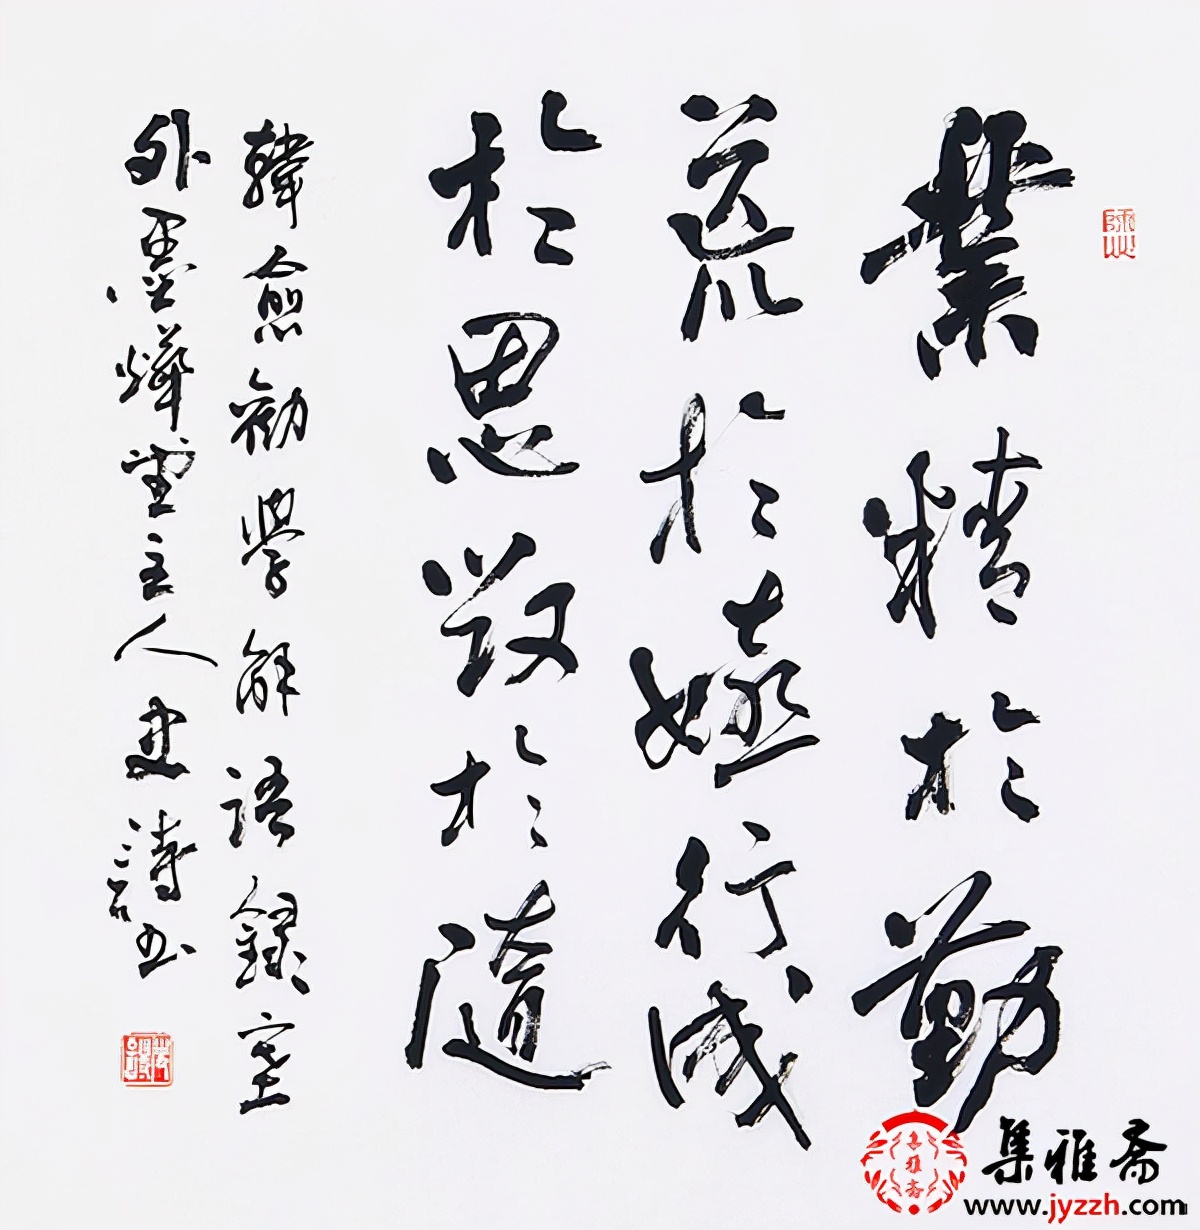 業精於勤
荒於嬉行成
於思毀於隨
韓愈勸學解語錄室
外墨燁堂主人史濤书
集雅斋
www.jyzzh.com